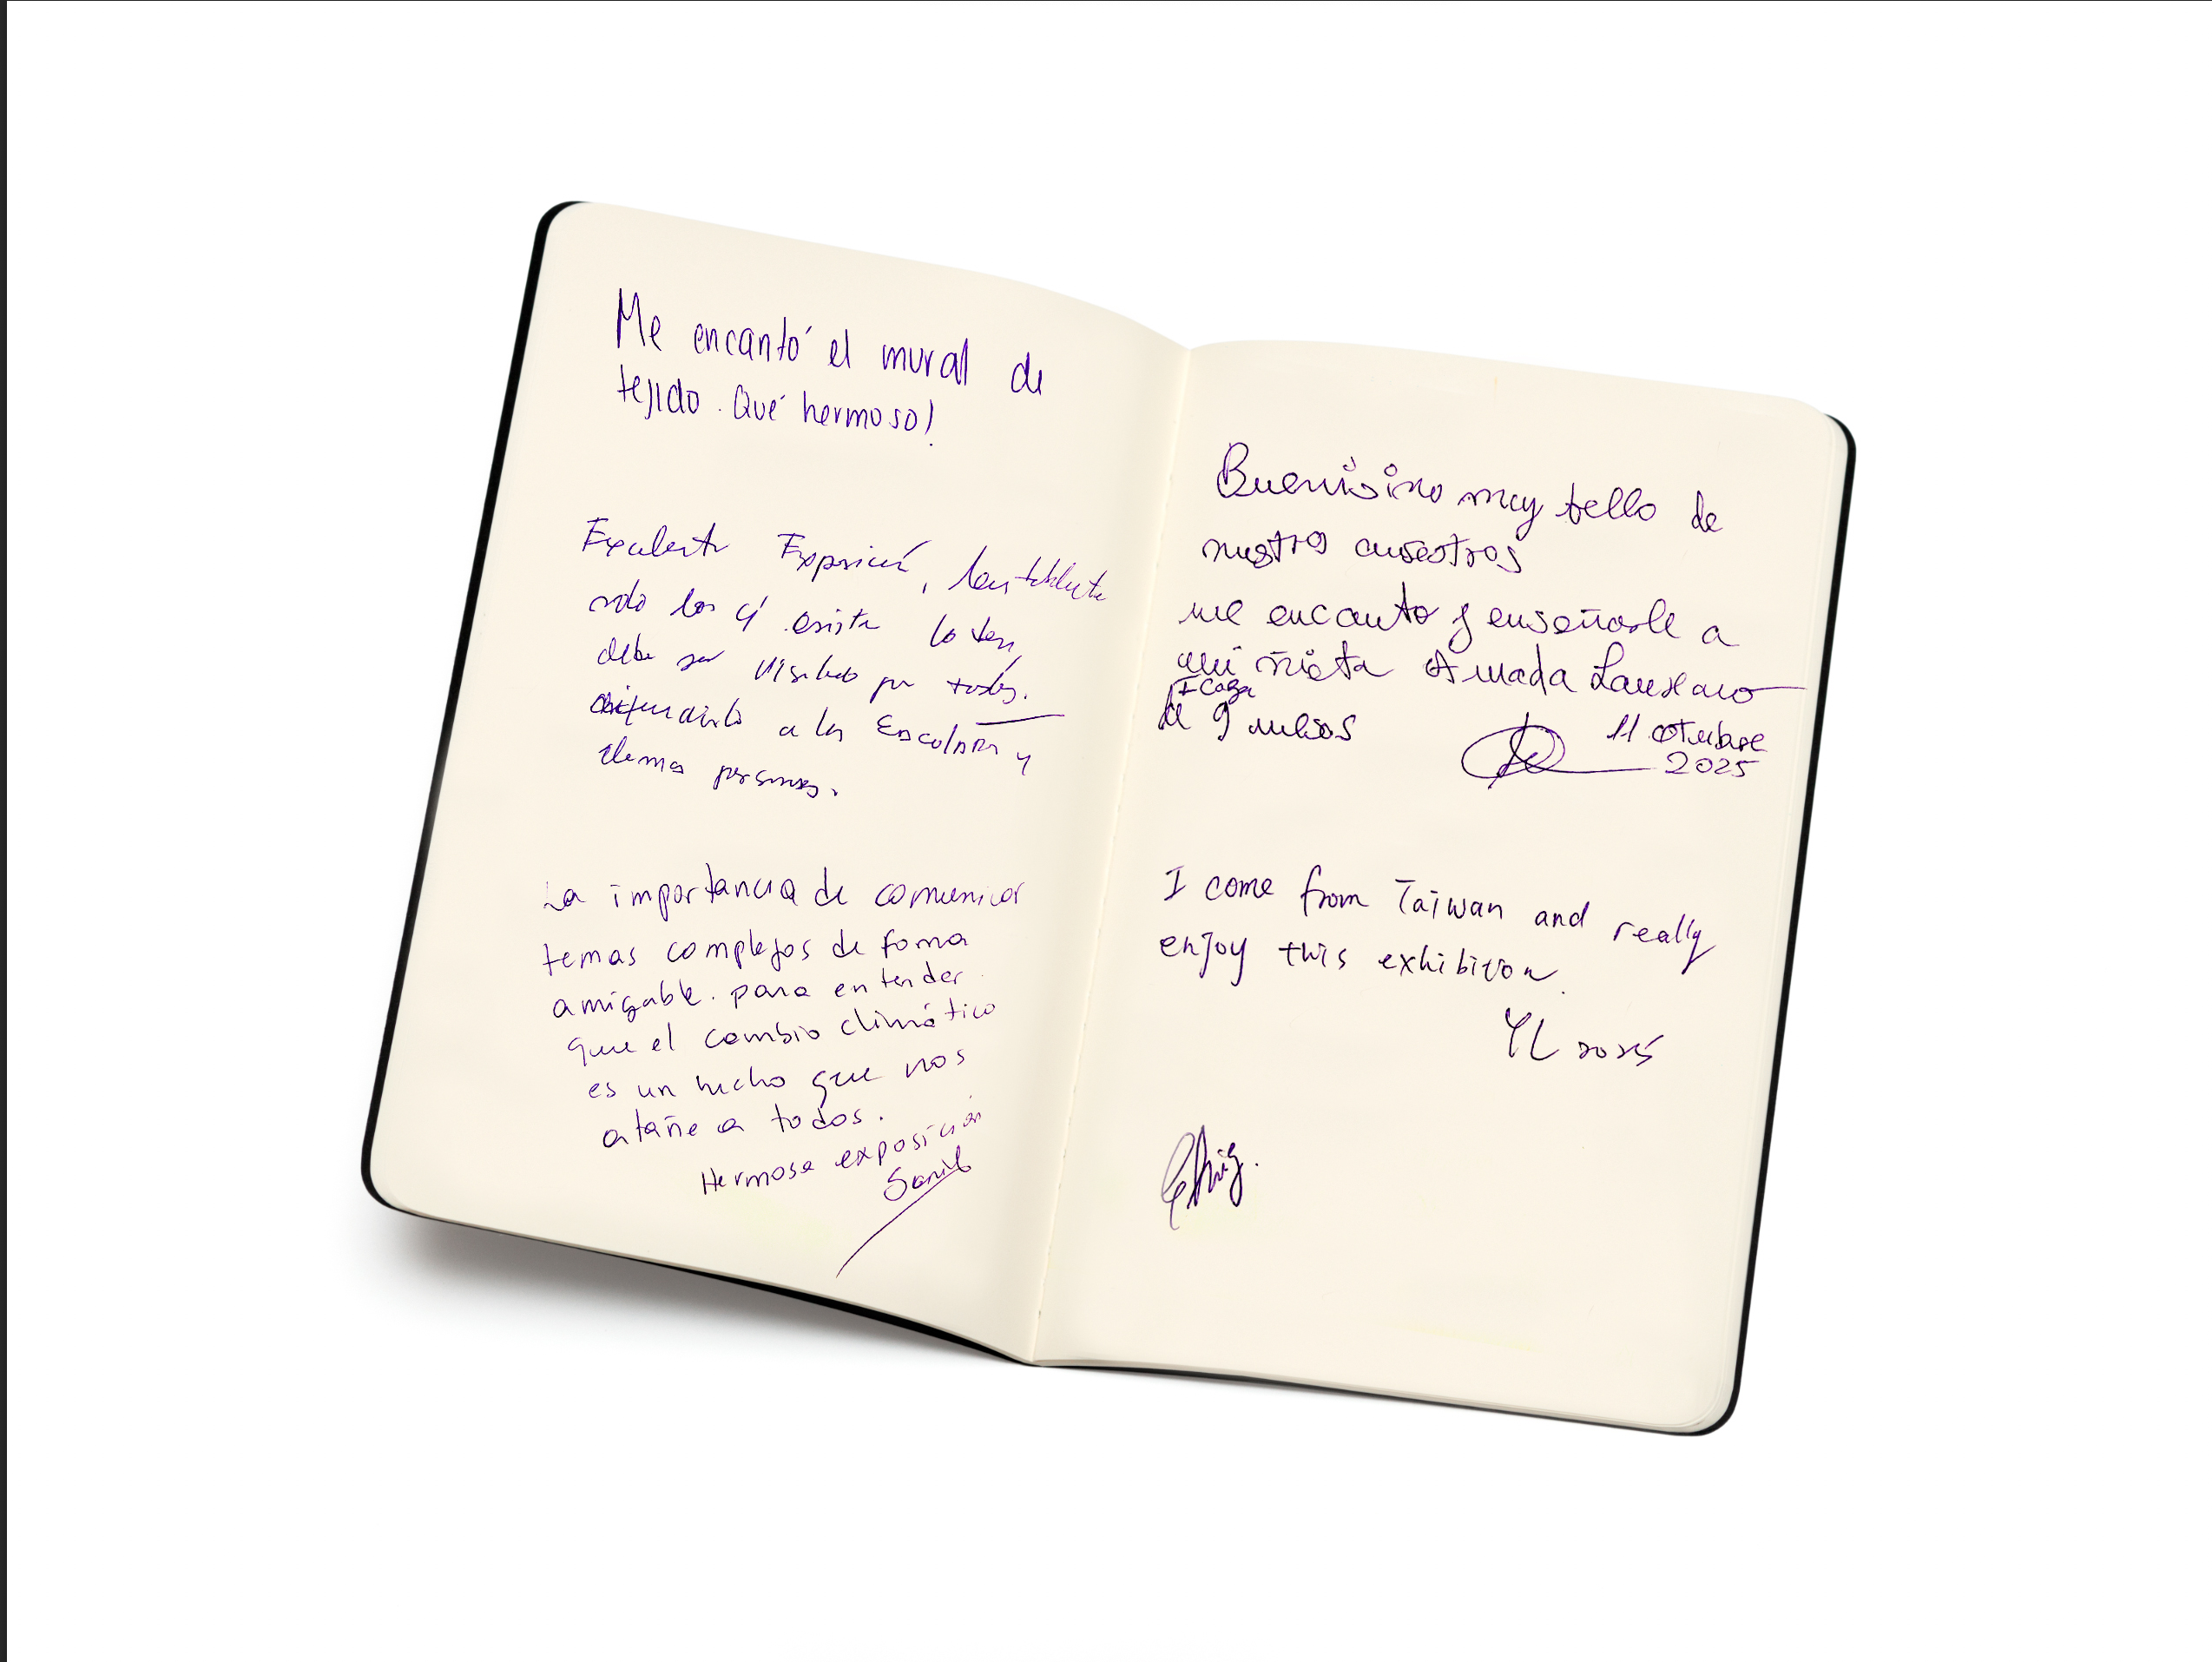 Me encantó el mural de
tejido. Qué hermoso!
Excelente Exposición,
existe
debe ser visitado por todos.
a los Escolares y
demas personas.
La importancia de comunicar
temas complejos de forma
amigable. para entender
que el cambio climático
es un hecho que nos
atañe a todos.
Hermosa exposición
Buenisimo muy bello de
ansestros
me encanto y enseñarle a
mi nieta Amada
de 9 meses
11 otubre
2025
I come from Taiwan and really
enjoy this exhibition.
YL 2025